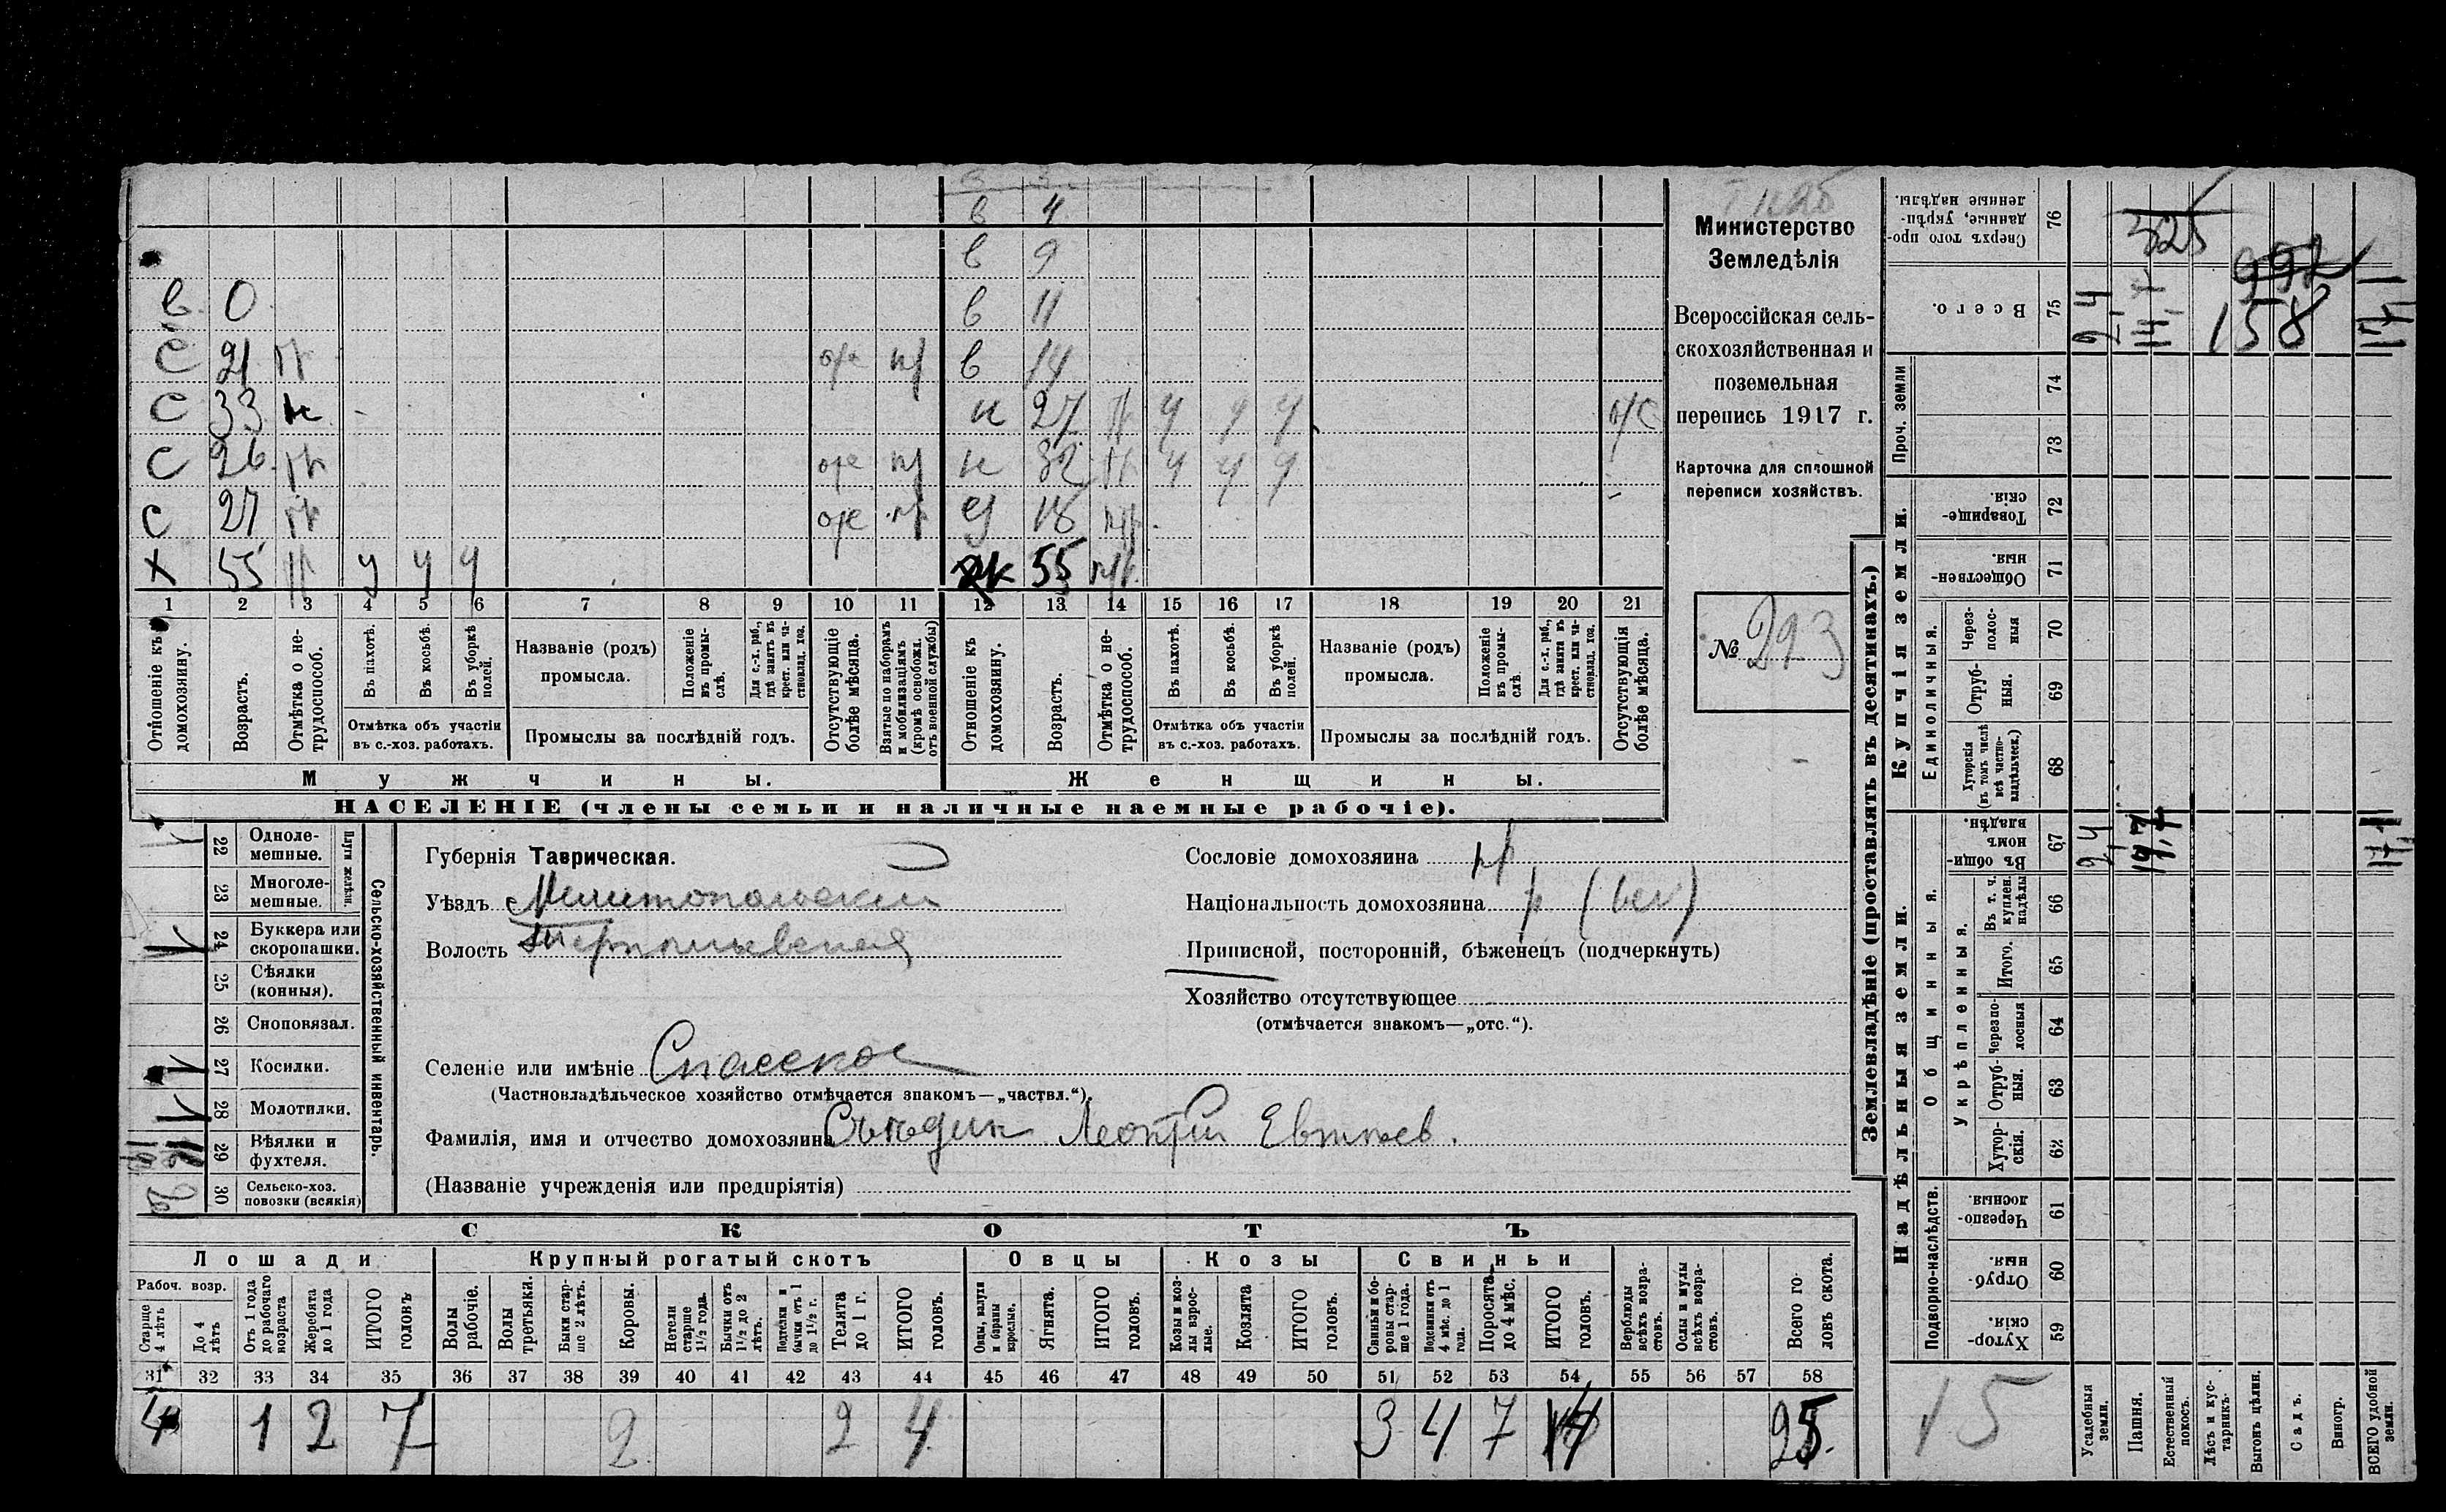 в 4
в 9
в 0 в 11
с 21 в 14
с 33 н н 27 у у у
с 26 н 32 у у у
с 27 18
х 55 у у у 55
1 2 3 4 5 6 7 8 9 10 11 12 13 14 15 16 17 18 19 20 21
Отношеніе къ домохозяину.
Возрастъ.
Отмѣтка о нетрудоспособ.
Въ пахотѣ.
Въ косьбѣ.
Въ уборкѣ полей.
Отмѣтка объ участіи
въ с.-хоз. работахъ.
Названіе (родъ)
промысла.
Положеніе въ промыслѣ.
Для с.-х. раб., гдѣ занятъ въ крест. или частновлад. хоз.
Промыслы за послѣдній годъ.
Отсутствующіе болѣе мѣсяца.
Взятые по наборамъ и мобилизаціямъ (кромѣ освобожд. отъ военной службы)
Отношеніе къ домохозяину.
Возрастъ.
Отмѣтка о нетрудоспособ.
Въ пахотѣ.
Въ косьбѣ.
Въ уборкѣ полей.
Отмѣтка объ участіи
въ с.-хоз. работахъ.
Названіе (родъ)
промысла.
Положеніе въ промыслѣ.
Для с.-х. раб., гдѣ занята въ крест. или частновлад. хоз.
Промыслы за послѣдній годъ.
Отсутствующія болѣе мѣсяца.
Мужчины.
Женщины.
НАСЕЛЕНІЕ (члены семьи и наличные наемные рабочіе).
Министерство
Земледѣлія
Всероссійская сель-
скохозяйственная и
поземельная
перепись 1917 г.
Карточка для сплошной
переписи хозяйствъ.
№ 293
22 Одноле-
мешные.
23 Многоле-
мешные.
Плуги желѣзн.
24 Буккера или
скоропашки.
25 Сѣялки
(конныя).
26 Сноповязал.
27 Косилки.
28 Молотилки.
29 Вѣялки и
фухтеля.
30 Сельско-хоз.
повозки (всякія)
Сельско-хозяйственный инвентарь.
Губернія Таврическая.
Уѣздъ Мелитопольскій
Волость
Селеніе или имѣніе Спасское
(Частновладѣльческое хозяйство отмѣчается знакомъ—„частвл.“).
Фамилія, имя и отчество домохозяина Леонтій
(Названіе учрежденія или предпріятія)
Сословіе домохозяина
Національность домохозяина р (вел)
Приписной, посторонній, бѣженецъ (подчеркнуть)
Хозяйство отсутствующее
(отмѣчается знакомъ—„отс.“).
СКОТЪ
Лошади
Крупный рогатый скотъ
Овцы
Козы
Свиньи
Рабоч. возр.
Старше 4 лѣтъ
До 4 лѣтъ
Отъ 1 года до рабочаго возраста
Жеребята до 1 года
ИТОГО головъ
Волы рабочіе.
Волы третьяки.
Быки старше 2 лѣтъ.
Коровы.
Нетели старше 1½ года.
Бычки отъ 1½ до 2 лѣтъ.
Подтелки и бычки отъ 1 до 1½ г.
Телята до 1 г.
ИТОГО головъ.
Овцы, валухи и бараны взрослые.
Ягнята.
ИТОГО головъ.
Козы и козлы взрослые.
Козлята
ИТОГО головъ.
Свиньи и боровы старше 1 года.
Подсвинки отъ 4 мѣс. до 1 года.
Поросята до 4 мѣс.
ИТОГО головъ.
Верблюды всѣхъ возрастовъ.
Ослы и мулы всѣхъ возрастовъ.
Всего головъ скота.
31 32 33 34 35 36 37 38 39 40 41 42 43 44 45 46 47 48 49 50 51 52 53 54 55 56 57 58
4 1 2 7 2 2 4 3 4 7 14 25
Землевладѣніе (проставлять въ десятинахъ.)
Купчія земли.
Надѣльныя земли.
Сверхъ того проданные, укрѣпленные надѣлы. 76
Всего. 75
Проч. земли 74
73
Товарищескія. 72
Общественныя. 71
Единоличныя.
Черезполосныя 70
Отрубныя. 69
Хуторскія (въ томъ числѣ всѣ частновладѣльческ.) 68
Общинныя.
Въ общинномъ владѣн. 67
Укрѣпленныя.
Въ т. ч. куплен. надѣлы 66
Итого. 65
Черезполосныя 64
Отрубныя. 63
Хуторскія. 62
Подворно-наслѣдств.
Черезполосныя. 61
Отрубныя. 60
Хуторскія. 59
325
992
158
2,4
15
Усадебныя земли.
Пашня.
Естественный покосъ.
Лѣсъ и кустарникъ.
Выгонъ цѣлин.
Садъ.
Виногр.
ВСЕГО удобной земли.